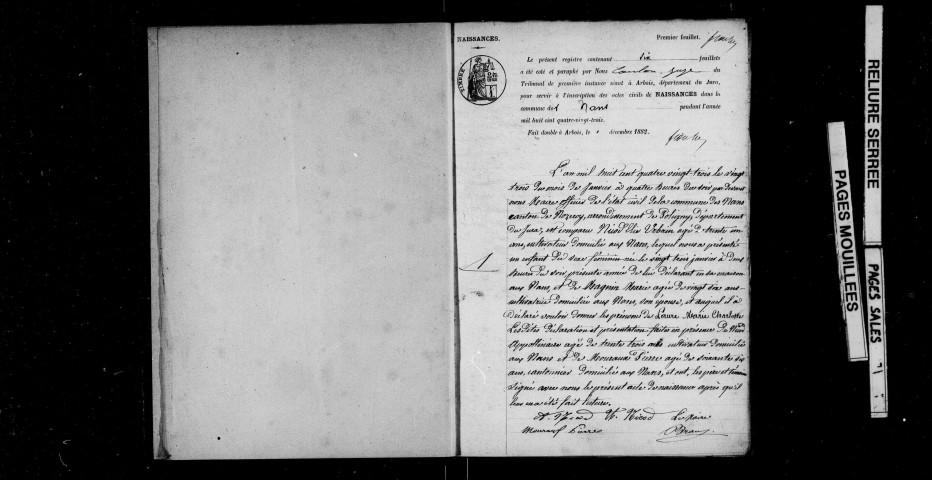 NAISSANCES.
Premier feuillet.
TIMBRE
Le présent registre contenant dix feuillets
a été coté et paraphé par Nous Juge du
Tribunal de première instance séant à Arbois, département du Jura,
pour servir à l'inscription des actes civils de NAISSANCES dans la
commune des Nans pendant l'année
mil huit cent quatre-vingt-trois.
Fait double à Arbois, le décembre 1882.
L'an mil huit cent quatre vingt trois le vingt
trois du mois de Janvier à quatre heures du soir par devant
nous Maire officier de l'état civil de la commune des Nans
canton de Nozeroy, arrondissement de Poligny, département
du Jura, est comparu Nicod Elie Urbain agé de trente un
ans, cultivateur domicilié aux Nans, lequel nous a présenté
un enfant du sexe féminin née le vingt trois janvier à deux
heures du soir présente année de lui déclarant en sa maison
1
aux Nans, et de Magnin Marie agée de vingt six ans
cultivatrice domiciliée aux Nans, son épouse, et auquel il a
déclaré vouloir donner les prénoms de Laure Marie Charlotte
Lesdites déclaration et présentation faites en présence de Nicod
Appollinaire agé de trente trois ans cultivateur domicilié
aux Nans et de Mouraux Pierre agé de soixante six
ans, cantonnier domicilié aux Nans, et ont, les père et témoins
signé avec nous le présent acte de naissance après qu'il
leur en a été fait lecture.
A. Nicod U. Nicod Le Maire
Mouraux Pierre
RELIURE SERREE
PAGES MOUILLEES
PAGES SALES